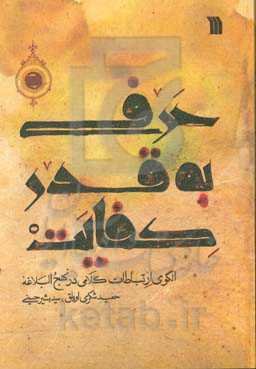 حرفی
به قدر
کفایت
الگوی ارتباطات کلامی در نهج البلاغه
حمید شکری اوبلاق، سید بشیر حسینی
ketab.ir